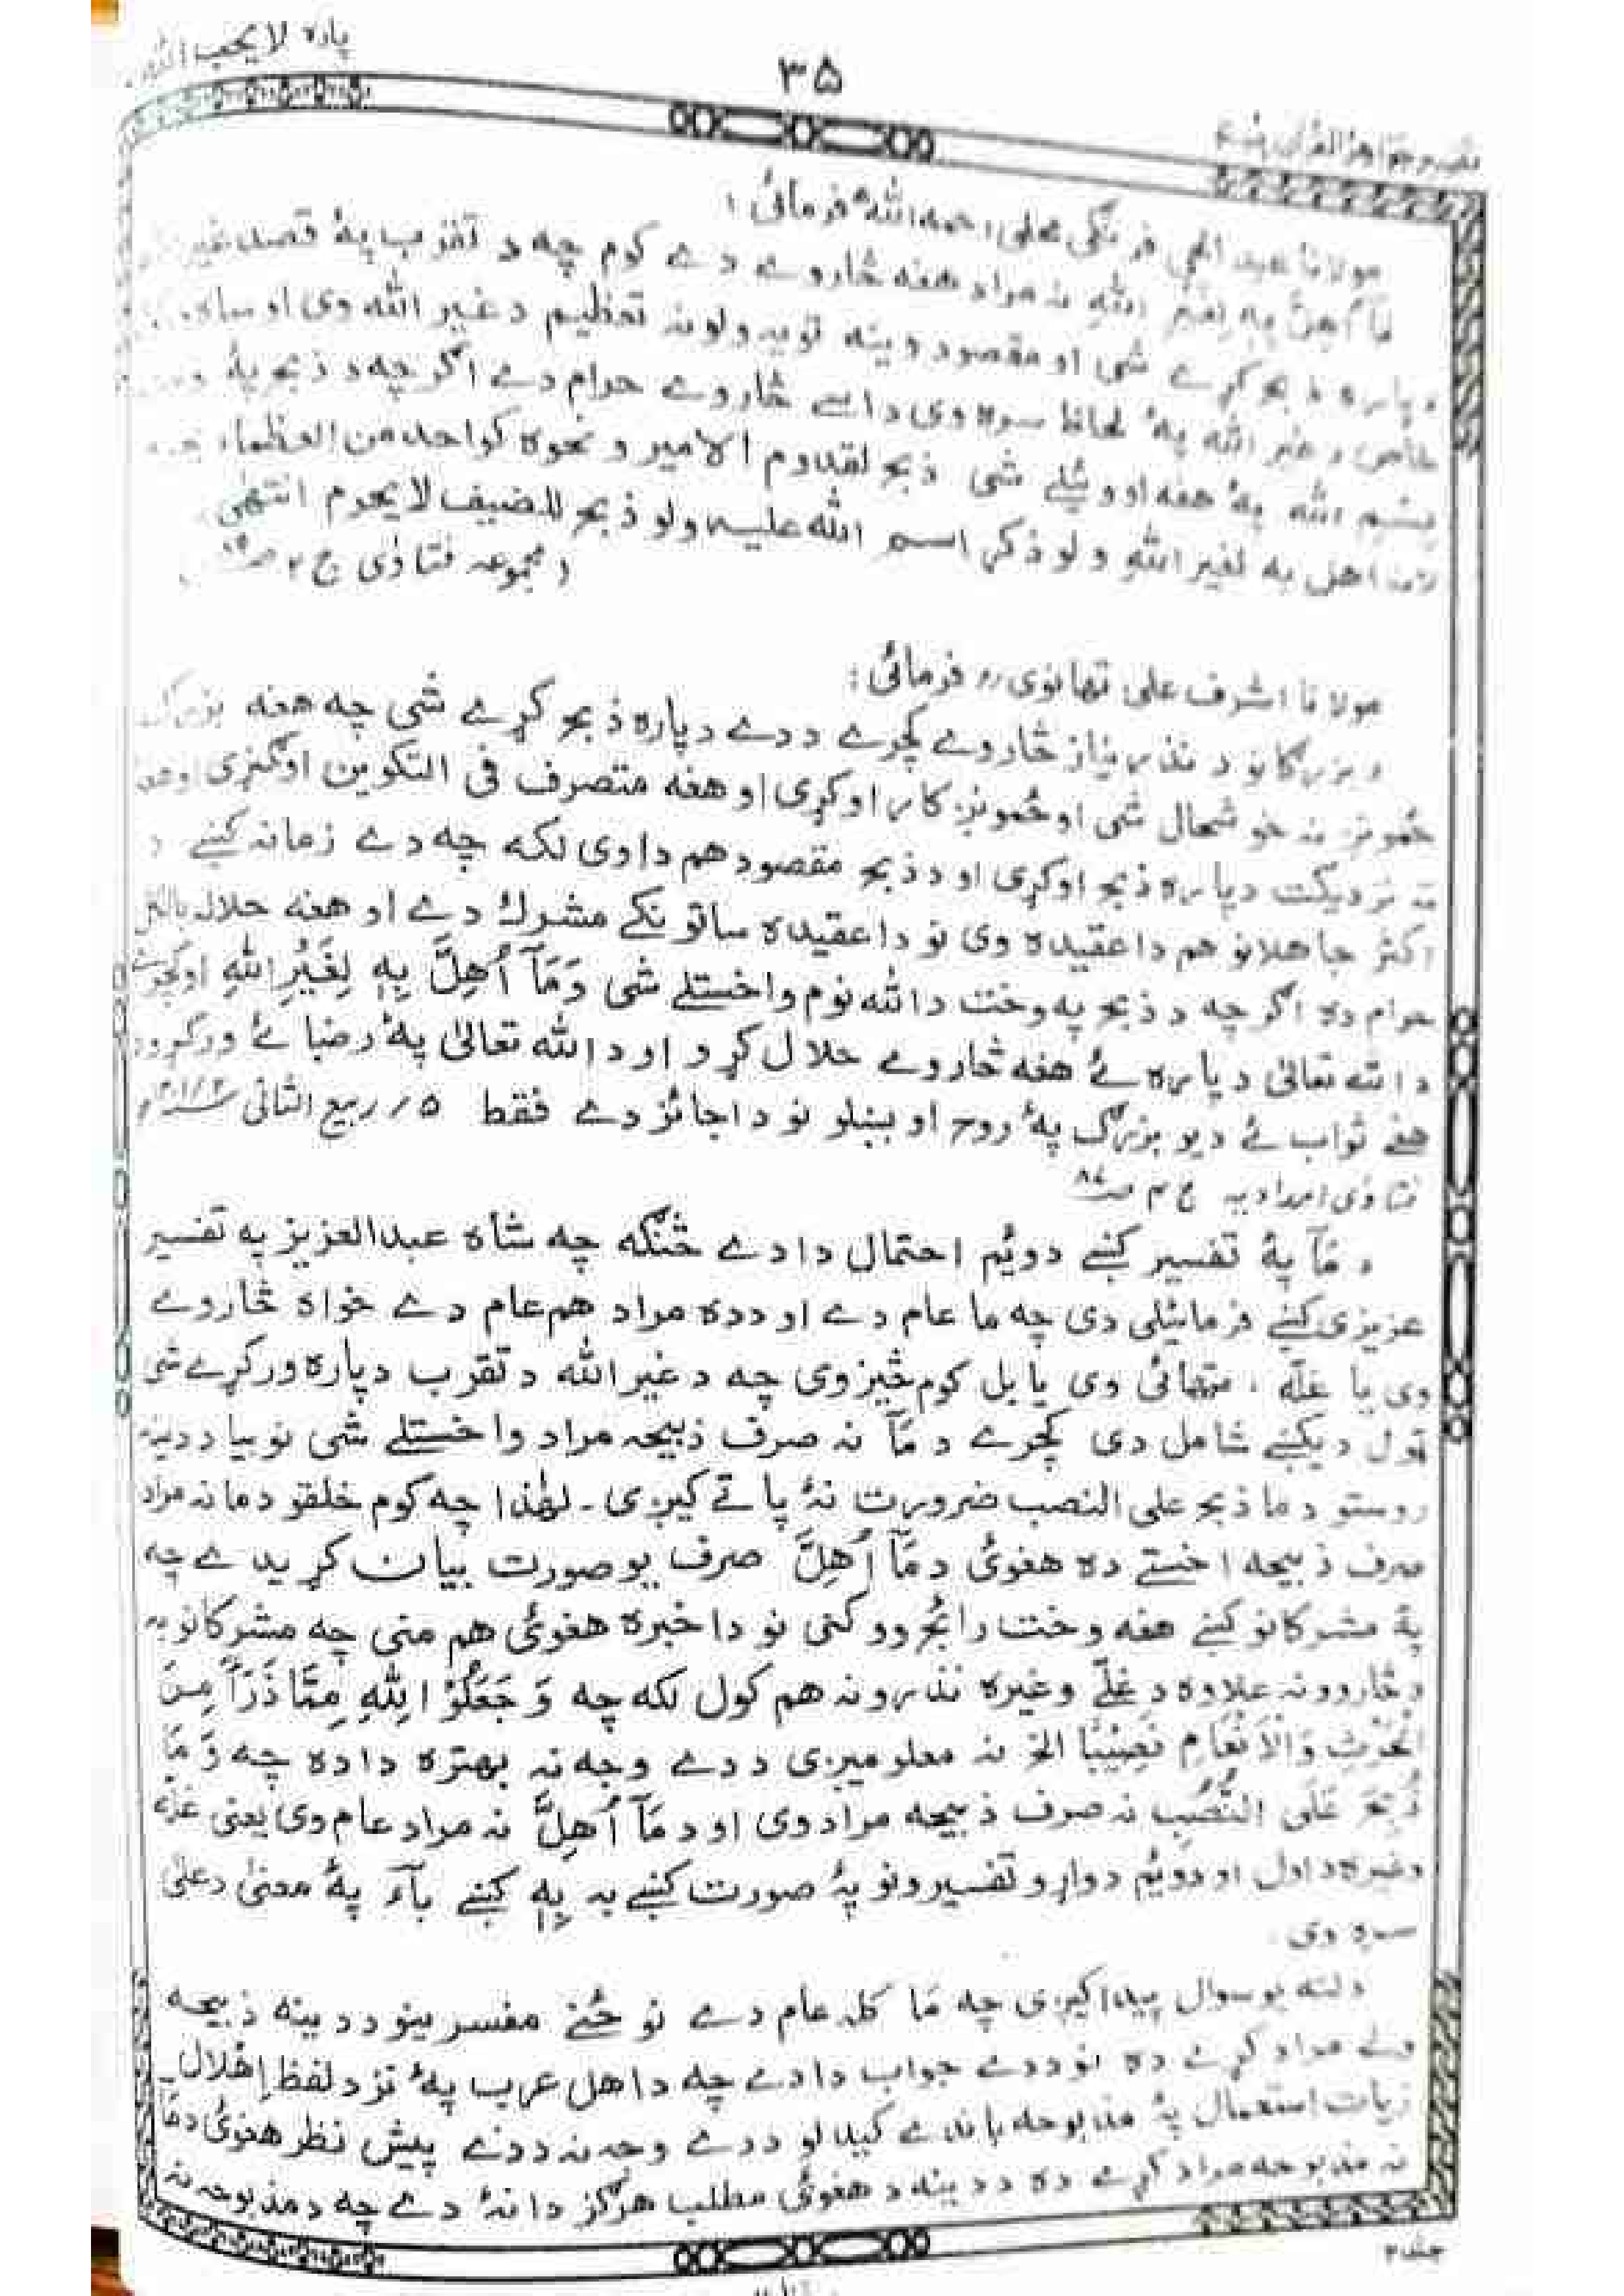 پاره لا یحب الله
۳۵
تفسیر جواهر القرآن پښتو
مولانا عبد الحی فرنگی محلی رحمه الله فرمائی :
مَآ اُهِلَّ بِهٖ لِغَیْرِ اللهِ نه مراد هغه څاروے دے کوم چه د تقرب پهٔ قصد غیر
دپاره ذبحه کړے شی او مقصود د وینه تویه ولو نه تعظیم د غیر الله وی او ساه
خاص د غیر الله پهٔ لحاظ سره وی داسے څاروے حرام دے اگرچه د ذبحے پهٔ وخت
بسم الله پهٔ هغه اووئیلے شی ذبح لقدوم الامیر و نحوه کواحد من العظماء
لانه اهل به لغیر الله ولو ذکر اسم الله علیه ولو ذبح للضیف لا یحرم انتهٰی
(مجموعه فتاوٰی ج ۲ ص
مولانا اشرف علی تهانوی رح فرمائی :
د بزرگانو د نذر نیاز څاروے کچرے د دے دپاره ذبح کړے شی چه هغه بزرگ
څمونږ نه خوشحال شی او څمونږ کار اوکړی او هغه متصرف فی التکوین اوگنړی او هغه
ته نزدیکت دپاره ذبح اوکړی او د ذبح مقصود هم دا وی لکه چه دے زمانه کښے د
اکثر جاهلانو هم دا عقیده وی نو دا عقیده ساتونکے مشرک دے او هغه حلاله بالکل
حرام ده اگرچه د ذبح په وخت د الله نوم واخستلے شی وَمَآ اُهِلَّ بِهٖ لِغَیْرِ اللهِ او کچرے
د الله تعالیٰ دپاره ئے هغه څاروے حلال کړو او د الله تعالیٰ پهٔ رضا ئے ورکړو
هغے ثواب ئے د یو بزرگ پهٔ روح اوبښلو نو دا جائز دے فقط ۵/ ربیع الثانی
فتاوٰی امدادیه ج ۴ ص
د مَآ پهٔ تفسیر کښے دوئیم احتمال دا دے څنگه چه شاه عبدالعزیز په تفسیر
عزیزی کښے فرمائیلی دی چه ما عام دے او دده مراد هم عام دے خواه څاروے
وی یا غله ، متهائی وی یا بل کوم څیز وی چه د غیر الله د تقرب دپاره ورکړے شی
ټول دیکښے شامل دی کچرے د مَآ نه صرف ذبیحه مراد واخستلے شی نو بیا ددینه
روستو د ما ذبح علی النصب ضرورت نهٔ پاتے کیږی ۔ لهٰذا چه کوم خلقو د ما نه مراد
صرف ذبیحه اخستے ده هغوئ د مَآ اُهِلَّ صرف یو صورت بیان کړیدے چه
پهٔ مشرکانو کښے هغه وخت رائج وو کنی نو دا خبره هغوئ هم منی چه مشرکانو به
د څاروو نه علاوه د غلے وغیره نذرونه هم کول لکه چه وَجَعَلُوْا لِلّٰهِ مِمَّا ذَرَاَ مِنَ
الْحَرْثِ وَالْاَنْعَامِ نَصِیْبًا الخ نه معلومیږی د دے وجه نه بهتره دا ده چه وَمَا
ذُبِحَ عَلَی النُّصُبِ نه صرف ذبیحه مراد وی او د مَآ اُهِلَّ نه مراد عام وی یعنی غله
وغیره د اول او دوئیم دواړو تفسیرونو پهٔ صورت کښے به بِهٖ کښے بآء پهٔ معنیٰ د علیٰ
سره وی
دلته یو سوال پیدا کیږی چه مَا کله عام دے نو څنے مفسرینو ددینه ذبیحه
ولے مراد کړے ده نو ددے جواب دا دے چه د اهل عرب پهٔ نزد لفظ اِهْلال
زیات استعمال پهٔ مذبوحه باندے کیدلو ددے وجه نه ددے پیش نظر هغوئ د مَآ
نه مذبوحه مراد کړے ده ددینه د هغوئ مطلب هرگز دا نهٔ دے چه د مذبوحه نه
جلد ۲